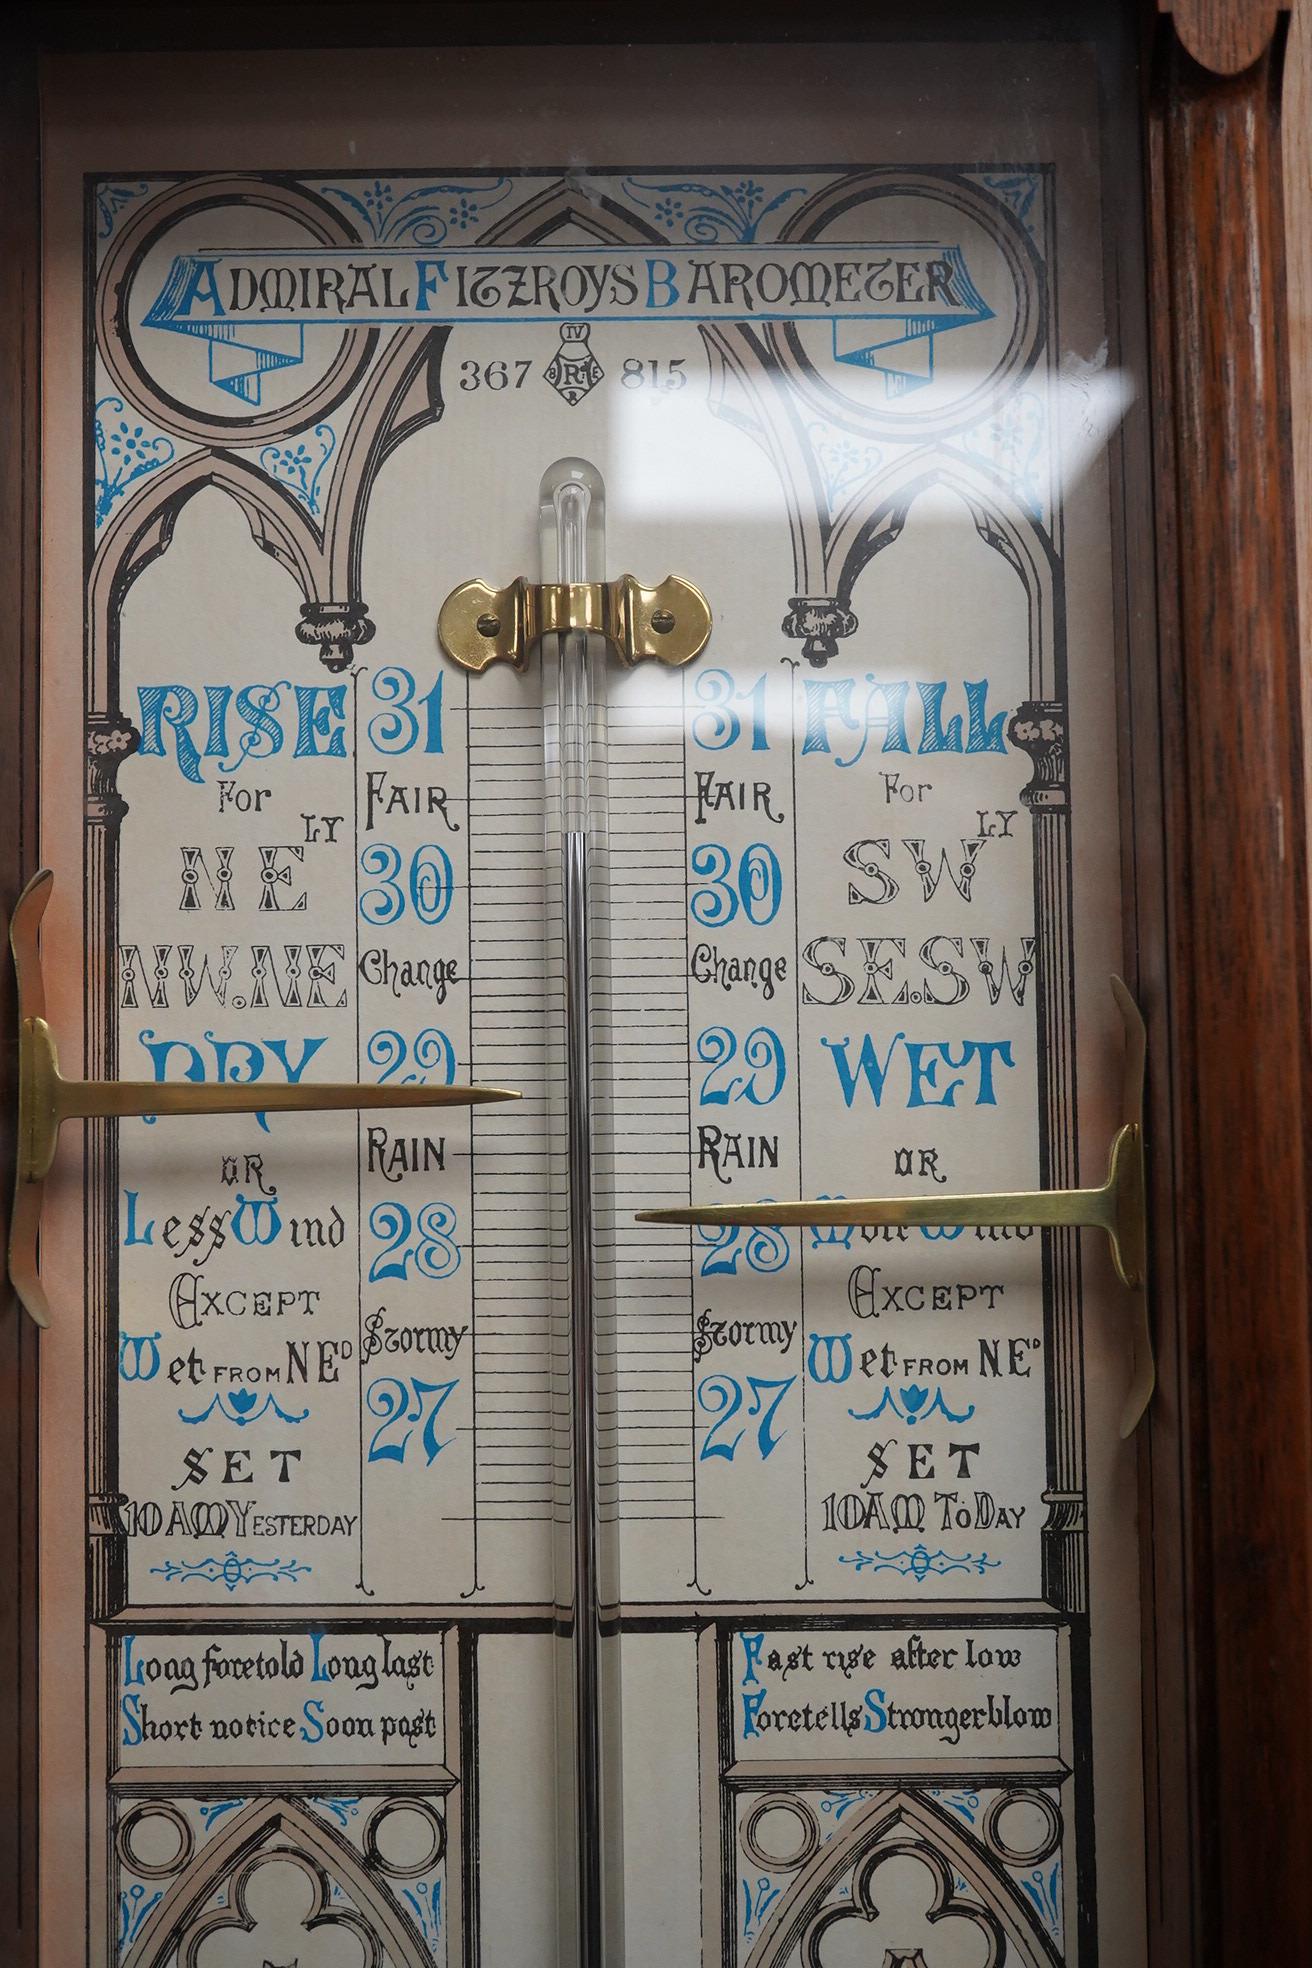 ADMIRAL FITZROYS BAROMETER
IV
367 R 815
RISE 31
For FAIR
NE LY 30
NW.NE Change
DRY 29
OR RAIN
Less Wind 28
EXCEPT
Wet FROM NE D Stormy
27
SET
10 AM YESTERDAY
31 FALL
FAIR For
30 SW LY
Change SE.SW
29 WET
RAIN OR
28 More Wind
EXCEPT
Stormy Wet FROM NE D
27
SET
10 AM TODAY
Long foretold Long last
Short notice Soon past
Fast rise after low
Foretells Stronger blow